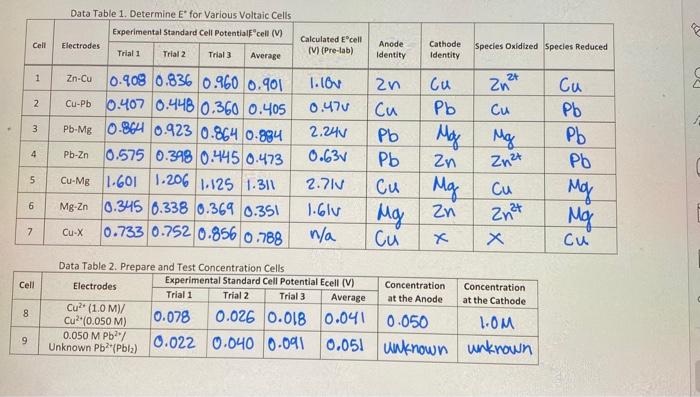 Data Table 1. Determine E° for Various Voltaic Cells
Cell Electrodes Experimental Standard Cell Potential E°cell (V) Calculated E°cell (V) (Pre-lab) Anode Identity Cathode Identity Species Oxidized Species Reduced
Trial 1 Trial 2 Trial 3 Average
1 Zn-Cu 0.908 0.836 0.960 0.901 1.10v Zn Cu Zn²⁺ Cu
2 Cu-Pb 0.407 0.448 0.360 0.405 0.47v Cu Pb Cu Pb
3 Pb-Mg 0.864 0.923 0.864 0.884 2.24v Pb Mg Mg Pb
4 Pb-Zn 0.575 0.398 0.445 0.473 0.63v Pb Zn Zn²⁺ Pb
5 Cu-Mg 1.601 1.206 1.125 1.311 2.71v Cu Mg Cu Mg
6 Mg-Zn 0.345 0.338 0.369 0.351 1.61v Mg Zn Zn²⁺ Mg
7 Cu-X 0.733 0.752 0.856 0.788 n/a Cu x x Cu
Data Table 2. Prepare and Test Concentration Cells
Cell Electrodes Experimental Standard Cell Potential Ecell (V) Concentration at the Anode Concentration at the Cathode
Trial 1 Trial 2 Trial 3 Average
8 Cu²⁺ (1.0 M)/ Cu²⁺(0.050 M) 0.078 0.026 0.018 0.041 0.050 1.0M
9 0.050 M Pb²⁺/ Unknown Pb²⁺(PbI₂) 0.022 0.040 0.091 0.051 unknown unknown